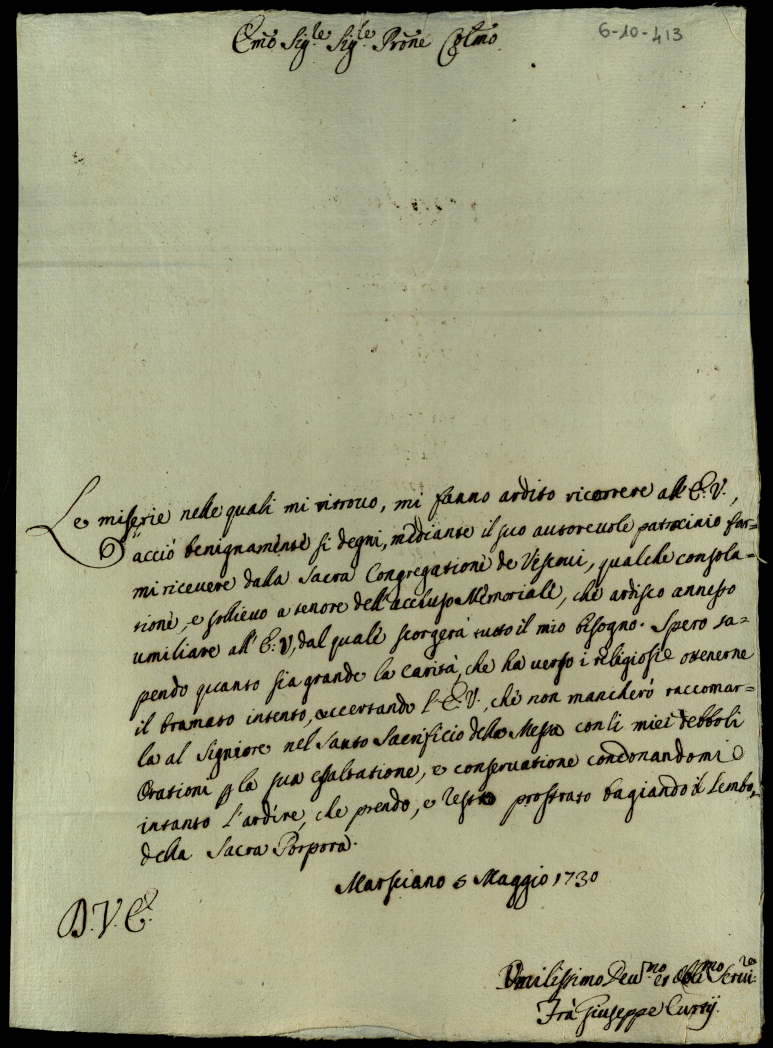 6-10-413
Emõ Sig.le Sig.le Prõne Colmõ
Le miserie nelle quali mi ritrovo, mi fanno ardito ricorrere all' E: V.,
acciò benignamente si degni, mediante il suo autorevole patrocinio far=
mi ricevere dalla Sacra Congregatione de Vescovi, qualche consola=
tione, e sollievo a tenore dell' accluso Memoriale, che ardisco annesso
umiliare all' E: V, dal quale scorgerà tutto il mio bisogno. Spero sa=
pendo quanto sia grande la carità, che ha verso i religiosi e ottenerne
il bramato intento, accertando l' E: V., che non mancherò raccomar=
la al Signiore nel Santo Sacrificio della Messa con li miei debboli
Orationi p la sua esaltatione, e conservatione condonandomi
intanto l'ardire, che prendo, e resto prostrato bagiando il Lembo,
della Sacra Porpora.
Marsciano 6 Maggio 1730
D. V. E.
Umilissimo Dev.mo et Obli.mo Servi.re
Frà Giuseppe Curtij.